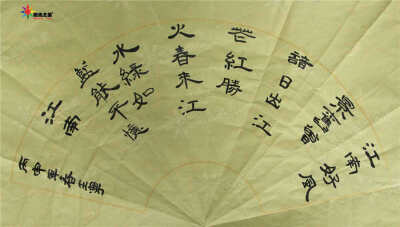 江南好風
景舊曾
諳日出江
花紅勝
火春來江
水綠如
藍能不憶
江南
丙申年春王